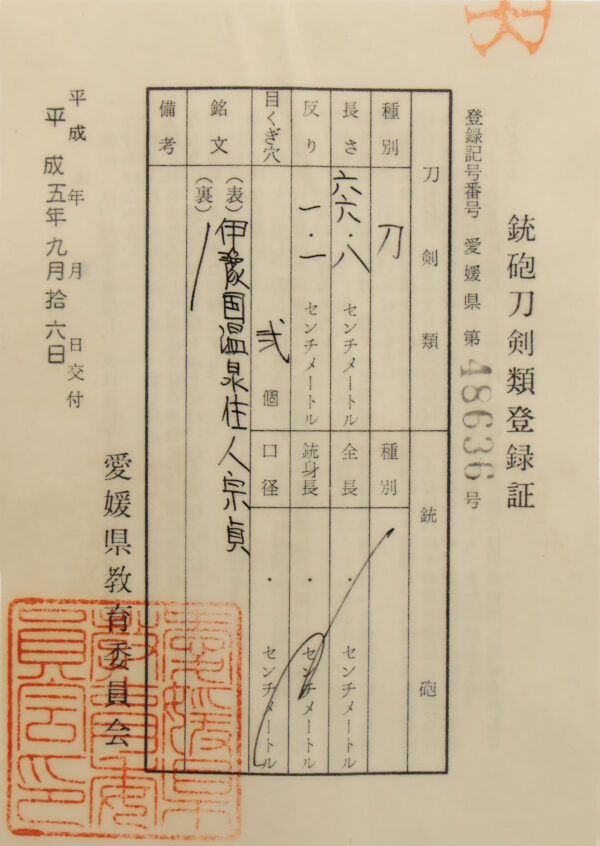 銃砲刀剣類登録証
登録記号番号 愛媛県 第 48636 号
刀剣類
銃砲
種別 刀
種別
長さ 六六・八 センチメートル
全長 ・ センチメートル
反り 一・一 センチメートル
銃身長 ・ センチメートル
目くぎ穴 弐 個
口径 ・ センチメートル
銘文 (表) 伊豫国温泉住人宗貞
(裏)
備考
平成 年 月 日交付
平成五年九月拾六日
愛媛県教育委員会
愛媛県教育委員会印